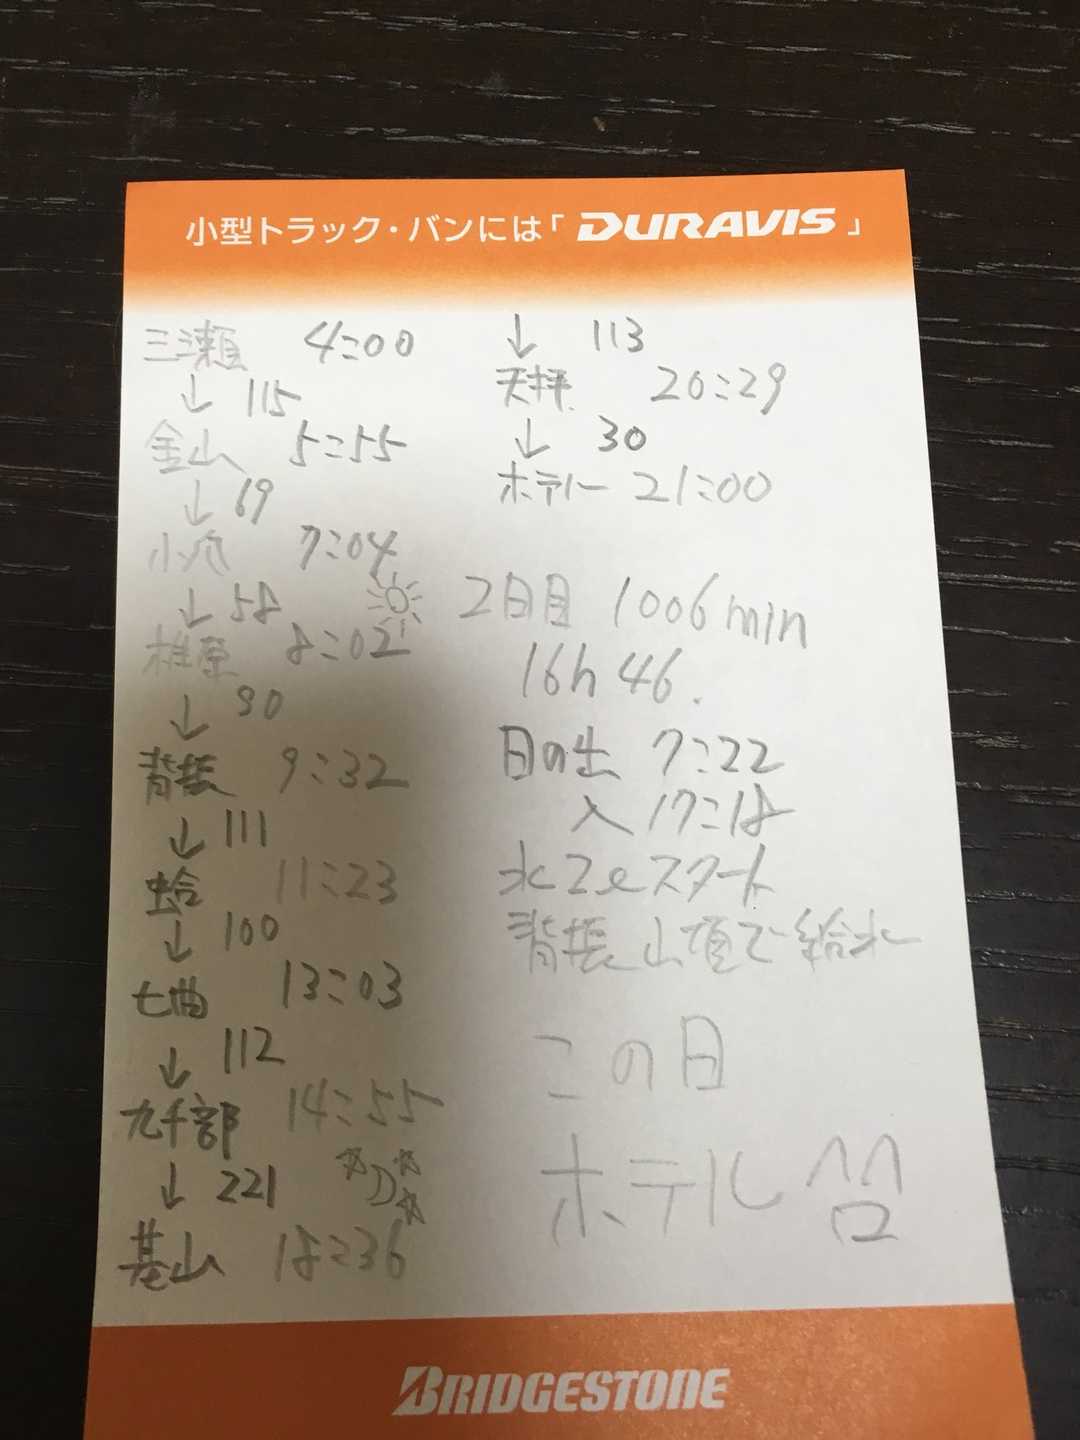 小型トラック・バンには「DURAVIS」
三瀬 4:00
↓ 115
金山 5:55
↓ 69
小爪 7:04
↓ 58
椎原 8:02
↓ 90
背振 9:32
↓ 111
蛤 11:23
↓ 100
七曲 13:03
↓ 112
九千部 14:55
↓ 221
基山 18:36
↓ 113
天拝 20:29
↓ 30
ホテル 21:00
2日目 1006min
16h 46.
日の出 7:22
入 17:18
水2ℓスタート
背振山頂で給水
この日
ホテル
BRIDGESTONE